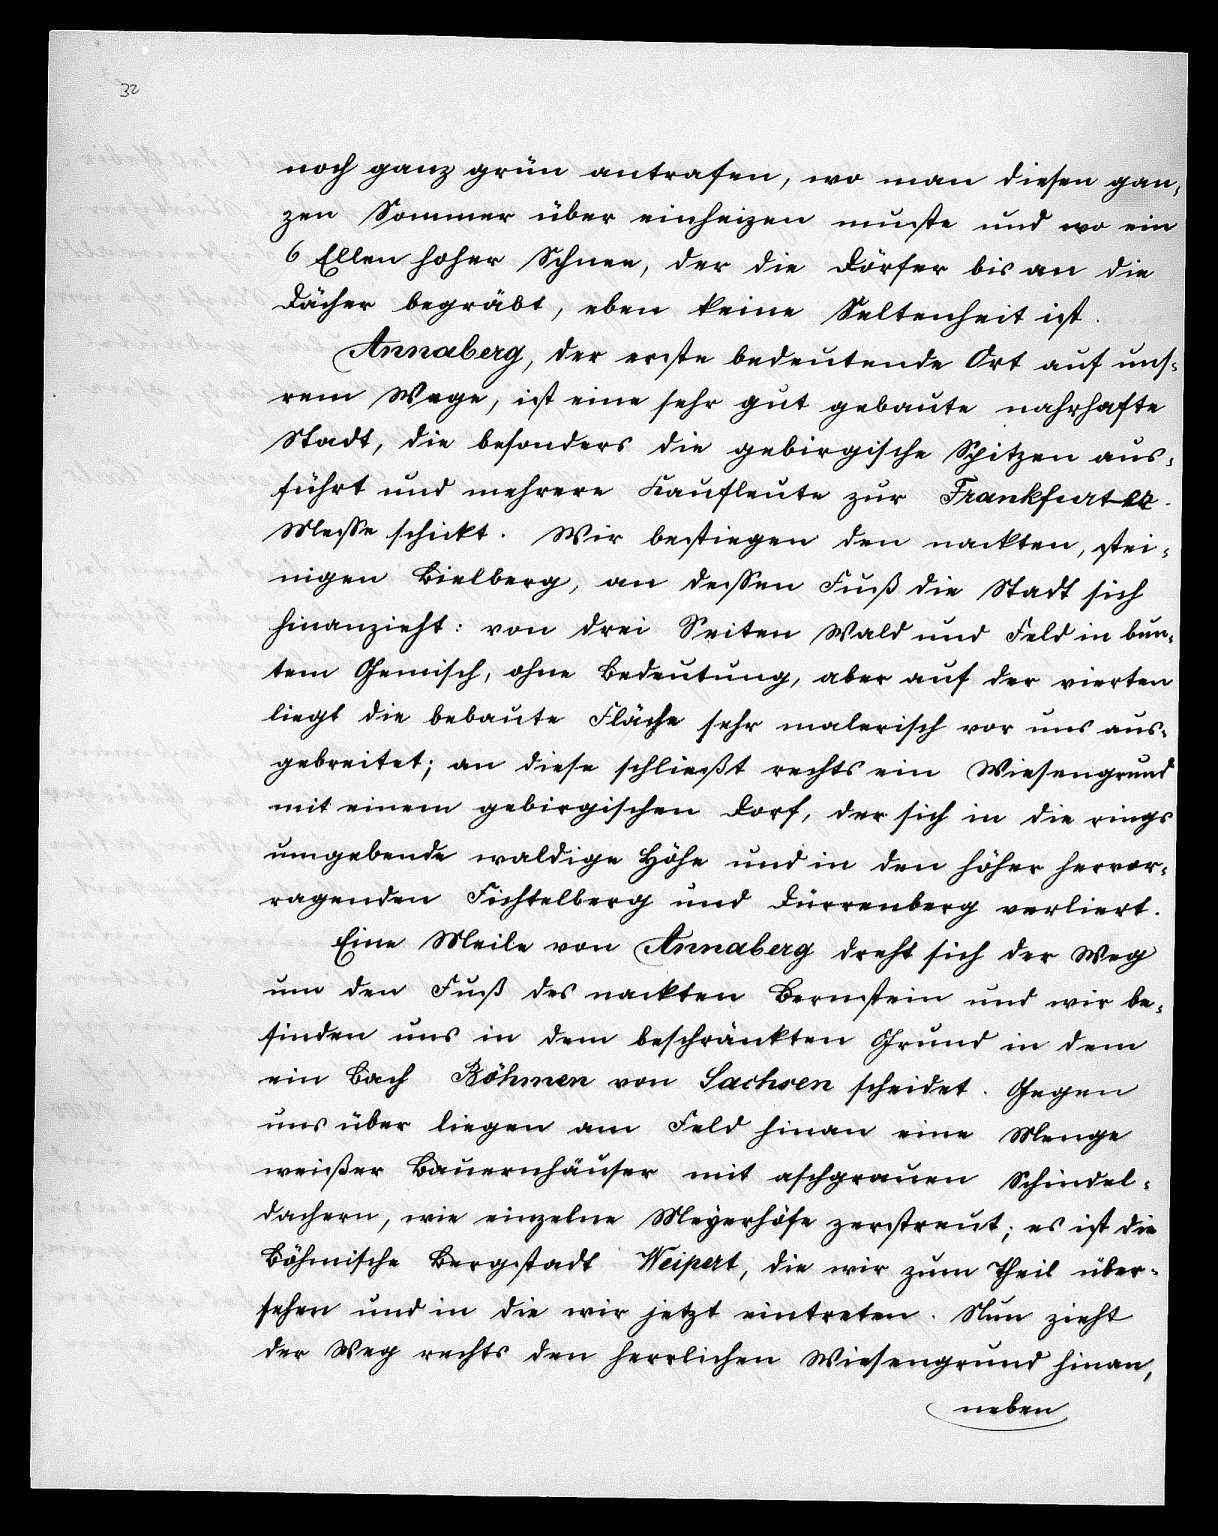 32
noch ganz grün antrafen, wo man diesen gan-
zen Sommer über einheizen muste und wo ein
6 Ellen hoher Schnee, der die Dörfer bis an die
Dächer begräbt, eben keine Seltenheit ist.
Annaberg, der erste bedeutende Ort auf uns-
rem Wege, ist eine sehr gut gebaute nahrhafte
Stadt, die besonders die gebirgische Spitzen aus-
führt und mehrere Kaufleute zur Frankfurter
Messe schickt. Wir bestiegen den nackten, stei-
nigen Bielberg, an dessen Fuß die Stadt sich
hinanzieht: von drei Seiten Wald und Feld in bun-
tem Gemisch, ohne Bedeutung, aber auf der vierten
liegt die bebaute Fläche sehr malerisch vor uns aus-
gebreitet; an diese schließt rechts ein Wiesengrund
mit einem gebirgischen Dorf, der sich in die rings
umgebende waldige Höhe und in den höher hervor-
ragenden Fichtelberg und Dürrenberg verliert.
Eine Meile von Annaberg dreht sich der Weg
um den Fuß des nackten Bernstein und wir be-
finden uns in dem beschränkten Grund in dem
ein Bach Böhmen von Sachsen scheidet. Gegen
uns über liegen am Feld hinan eine Menge
weißer Bauernhäuser mit aschgrauen Schindel-
dachern, wie einzelne Meyerhöfe zerstreut; es ist die
Böhmische Bergstadt Weipert, die wir zum Theil über-
sehen und in die wir jetzt eintreten. Nun zieht
der Weg rechts den herrlichen Wiesengrund hinan,
neben